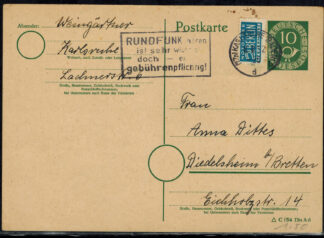 Absender:
Weingärtner
Karlsruhe
Wohnort, auch Zustell- oder Leitpostamt
Lachnerstr. 6
Straße, Hausnummer, Gebäudeteil, Stockwerk oder Postschließfachnummer;
bei Untermietern auch Name des Vermieters
Postkarte
RUNDFUNK hören
ist sehr
doch
gebührenpflichtig!
NOTOPFER
2
BERLIN
DEUTSCHE BUNDESPOST
10
Frau
Anna Dittes
Diedelsheim b/Bretten
Eichholzstr. 14
Straße, Hausnummer, Gebäudeteil, Stockwerk oder Postschließfachnummer;
bei Untermietern auch Name des Vermieters
C 154 Din A 6